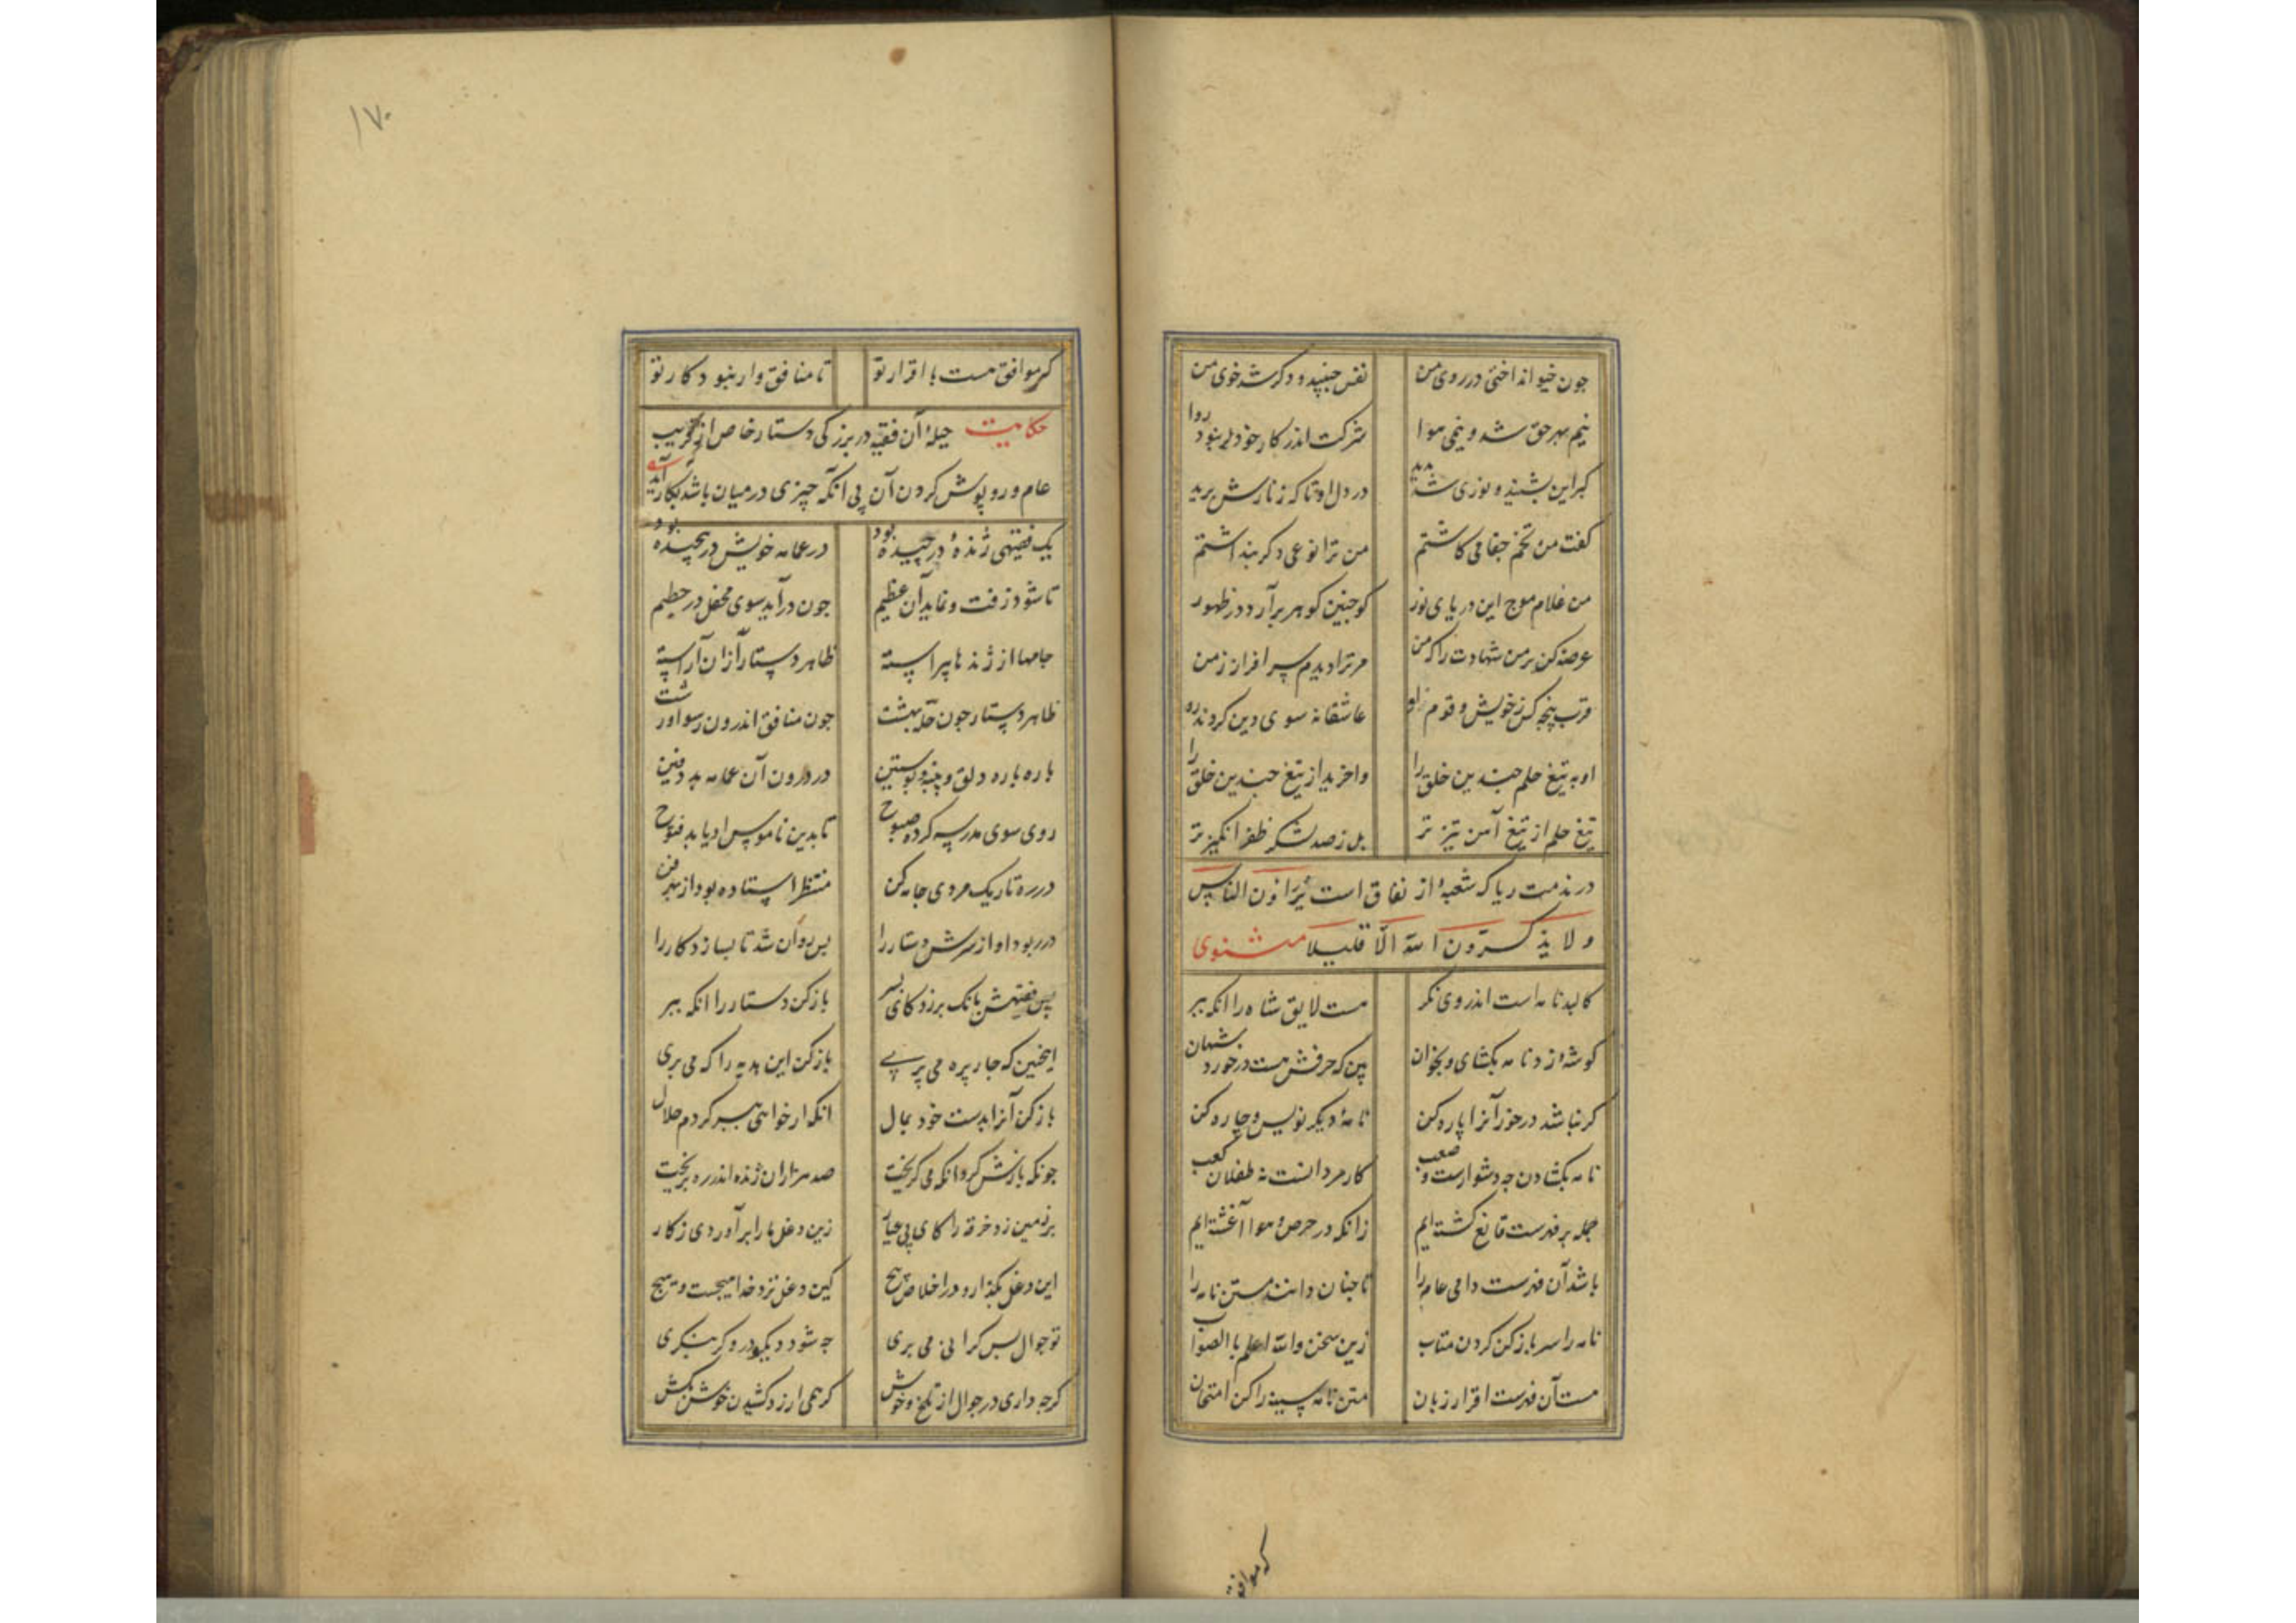 جون خیو انداختی در روی من نفس جنبید و دکر شد خوی من
نیم بهر حق شد و نیمی هوا شرکت اندر کار حق نبود روا
کبر این بشنید و نوری شد بدید در دل او تا که زنارش برید
کفت من تخم جفا می کاشتم من ترا نوعی دکر بنداشتم
من غلام موج این دریای نور کو جنین کوهر برآرد در ظهور
عرضه کن بر من شهادت را که من مر ترا دیدم سرافراز زمن
قرب پنجه کس ز خویش و قوم او عاشقانه سوی دین کردند رو
او به تیغ حلم جندین خلق را واخرید از تیغ جندین خلق را
تیغ حلم از تیغ آهن تیزتر بل ز صد لشکر ظفر انکیزتر
در مذمت ریا که شعبهٔ از نفاق است یُرَاؤن الناس
و لا یذکرون الله الّا قلیلا مثنوی
کالبد نامه است اندر وی نکر هست لایق شاه را انکه ببر
کوشهٔ رو نامه بکشای و بخوان بین که حرفش هست درخورد شهان
کر نباشد درخور آنرا پاره کن نامهٔ دیکر نویس و چاره کن
نامه بکشادن جه دشوارست و صعب کار مردانست نه طفلان کعب
جمله بر فهرست قانع کشته‌ایم زانکه در حرص و هوا آغشته‌ایم
باشد آن فهرست دامی عامه را تا جنان دانند متن نامه را
نامه را سر باز کن کردن متاب زین سخن والله اعلم بالصواب
هست آن فهرست اقرار زبان متن نامه سینه را کن امتحان
کر موافق
۱۷۰
کر موافق هست با اقرار تو تا منافق‌وار نبود کار تو
حکایت حیلهٔ آن فقیه در بزرکی دستار خاص از فریب
عام و روپوش کردن آن بی انکه چیزی در میان باشد بکار آید
یک فقیهی ژنده‌ٔ درچیده بود در عمامه خویش در پیچیده بود
تا شود زفت و نماید آن عظیم جون درآید سوی محفل در حطیم
جامها از ژندها پیراسته ظاهر دستار از آن آراسته
ظاهر دستار جون حلهٔ بهشت جون منافق اندرون رسوا و زشت
باره باره دلق و پنبه و پوستین در درون آن عمامه بد دفین
روی سوی مدرسه کرده صبوح تا بدین ناموس او یابد فتوح
در ره تاریک مردی جامه کن منتظر استاده بود از بهر فن
در ربود او از سرش دستار را بس دوان شد تا بسازد کار را
پس فقیهش بانک برزد کای پسر باز کن دستار را انکه ببر
اینچنین که جار پره می پری باز کن این هدیه را که می بری
باز کن آنرا بدست خود بمال انکه ار خواهی ببر کردم حلال
جونکه بازش کرد انکه می کریخت صد هزاران ژنده اندر ره بریخت
بر زمین زد خرقه را کای بی عیار زین دغل ما را برآوردی ز کار
این دغل بکذار و در اخلاص پیچ کین دغل نزد خدا هیجست و هیج
تو جوال بس کرانی می بری جه شود دیک در و کر بنکری
کرجه داری در جوال از تلخ و خوش کر همی ارزد کشیدن خوش بکش